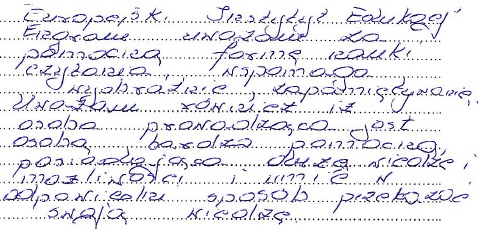 Europejski Instytut Edukacji
uważam za
pomocną formę nauki
czytania, wspomaga
wyobraźnię zapamiętywanie.
Uważam również iż
osoba prowadząca jest
osobą bardzo pomocną,
posiadająca dużą wiedzę i
możliwości i umie w
odpowiedni sposób przekazać
swoją wiedzę.